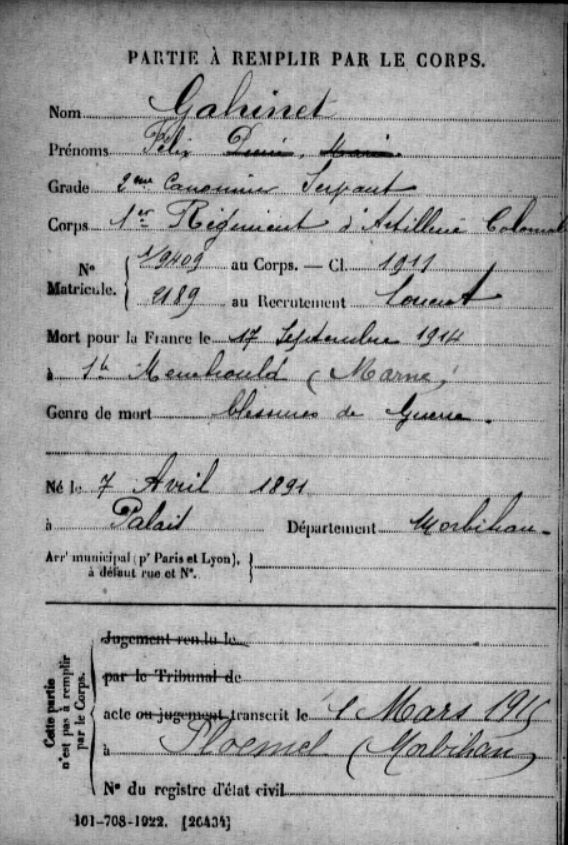 PARTIE À REMPLIR PAR LE CORPS.
Nom Gahinet
Prénoms Félix
Grade 2eme Canonnier Servant
Corps 1er Régiment d'Artillerie Colonial
No Matricule. 1/9409 au Corps. — Cl. 1911
2189 au Recrutement Lorient
Mort pour la France le 17 Septembre 1914
à Ste Menehould (Marne)
Genre de mort blessures de Guerre.
Né le 7 Avril 1891
à Palais Département Morbihan
Arrt municipal (pr Paris et Lyon), à défaut rue et No.
Cette partie n'est pas à remplir par le Corps.
Jugement rendu le
par le Tribunal de
acte ou jugement transcrit le Mars 1915
à Ploemel (Morbihan)
No du registre d'état civil
101-708-1922. [26434]